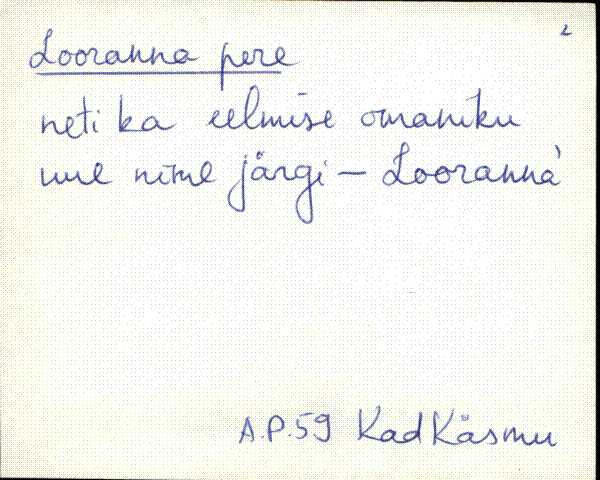 2
Looranna pere
neti ka eelmise omaniku
nime järgi – Looranna
A.P.59 Kad Käsmu